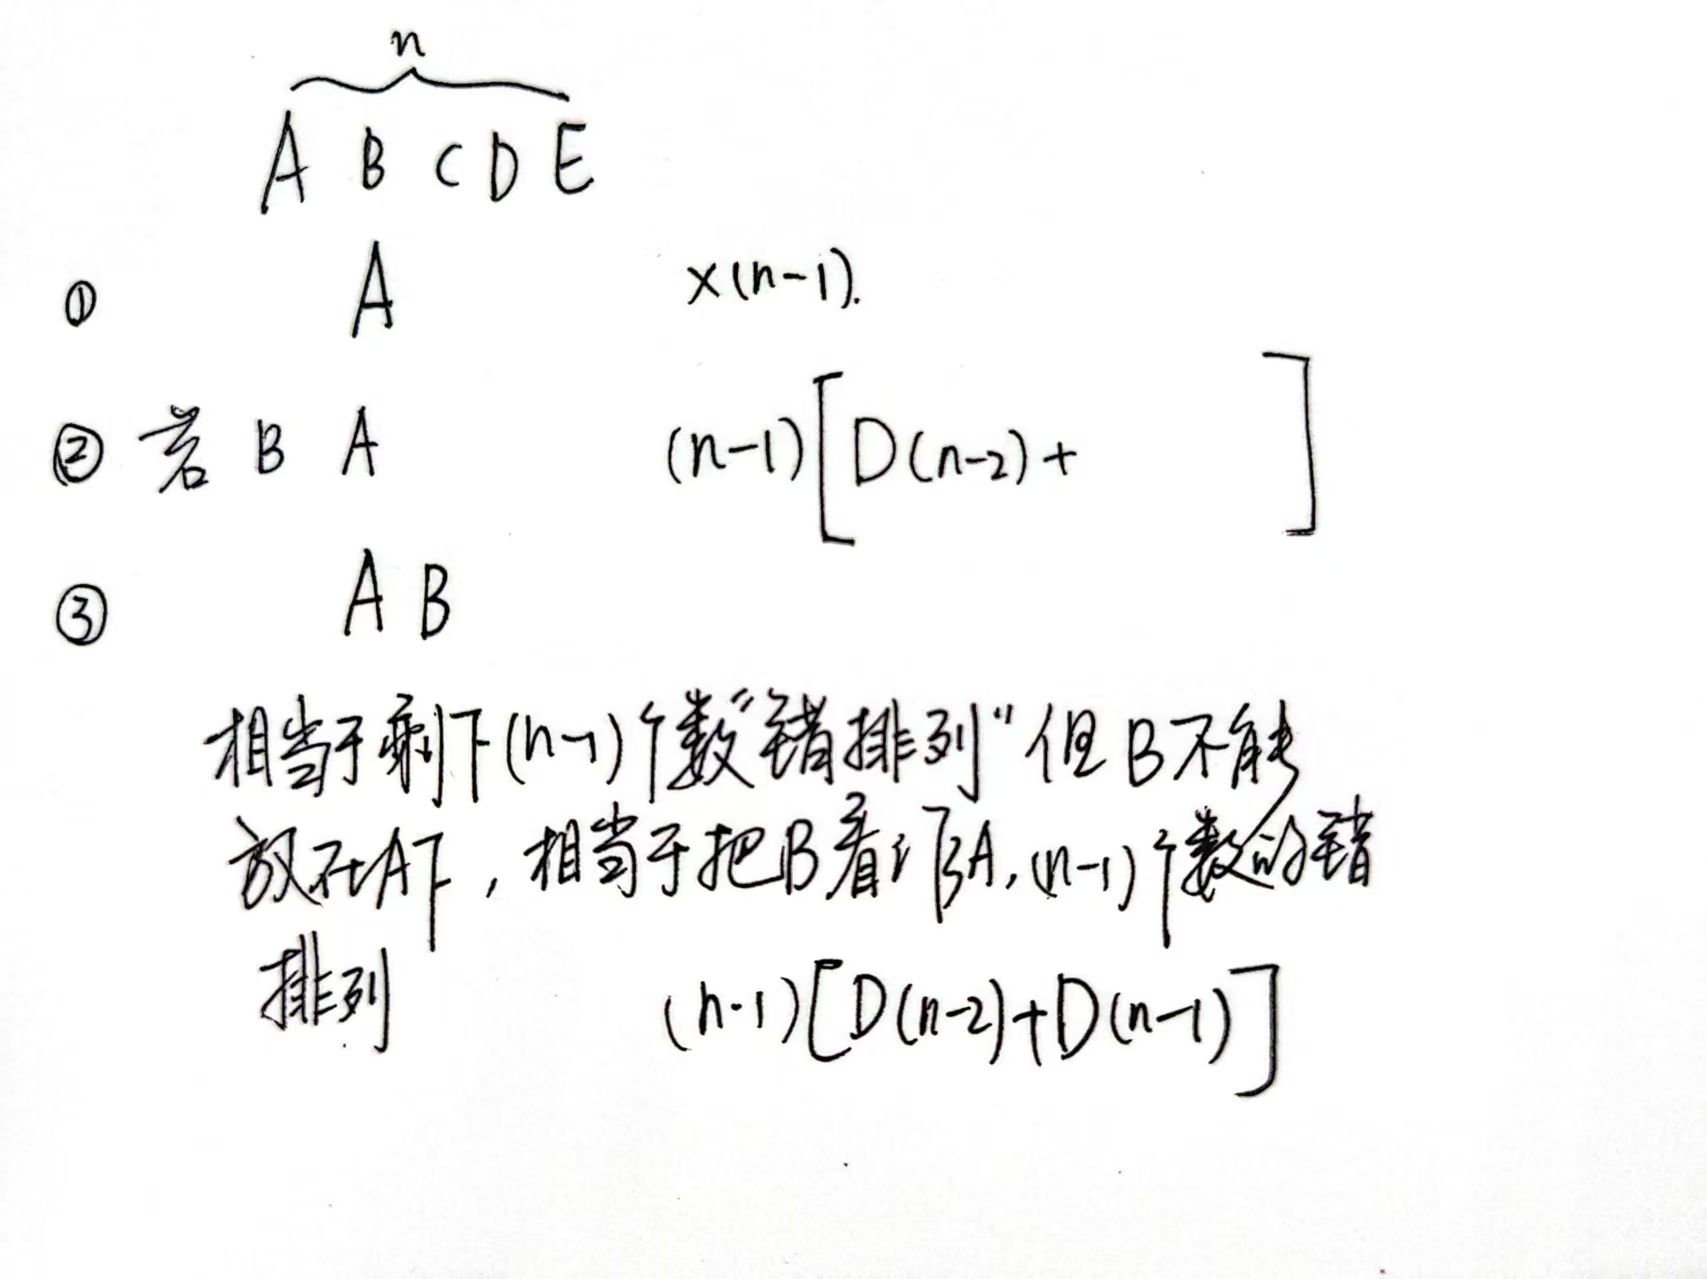 n
A B C D E
① A ×(n-1).
② 若 B A (n-1)[D(n-2)+ ]
③ A B
相当于剩下(n-1)个数"错排列"但B不能
放在A下,相当于把B看作A,(n-1)个数的错
排列 (n-1)[D(n-2)+D(n-1)]